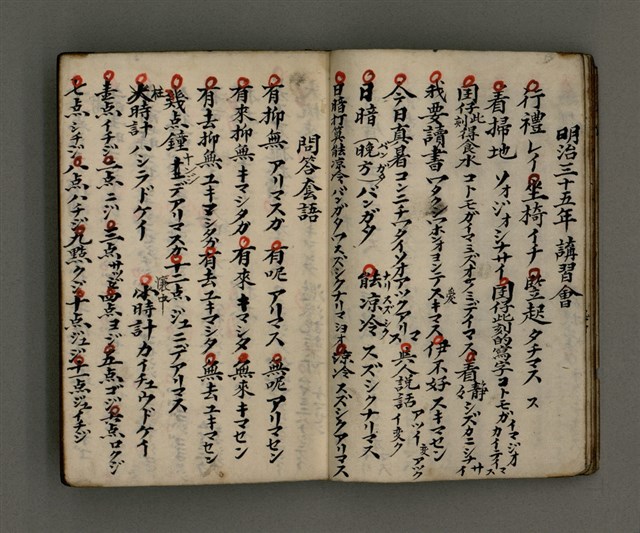 明治三十五年 講習會
行禮 レイ 坐椅 イチ 竪起 タチマス
看掃地 ソォジォシナサイ 囝仔此刻的寫字 コトモガイマジオカイテイマス
囝仔此刻得食水 コトモガイマミズオ 看靜々 シズカニシナサイ
我要讀書 伊不好 スキマセン
今日真暑 コンニチ 無人説話
日暗(晚方)バンガタ 能凉冷 スズシクナリマス
日暗打算能凉冷 バンガタ 凉冷 スズシクアリマス
問答套語
有抑無 アリマスカ 有呢 アリマス 無呢 アリマセン
有來抑無 キマシタカ 有來 キマシタ 無來 キマセン
有去抑無 ユキマシタカ 有去 ユキマシタ 無去 ユキマセン
幾点鐘 ナンジ デアリマスカ 十二点 ジュニジデアリマス
大時計 ハシラドケイ 時計 カイチュウドケイ
壹点 イチジ 二点 ニジ 三点 サンジ 四点 ヨジ 五点 ゴジ 六点 ロクジ
七点 シチジ 八点 ハチジ 九點 クジ 十点 ジュジ 十一点 ジュイチジ